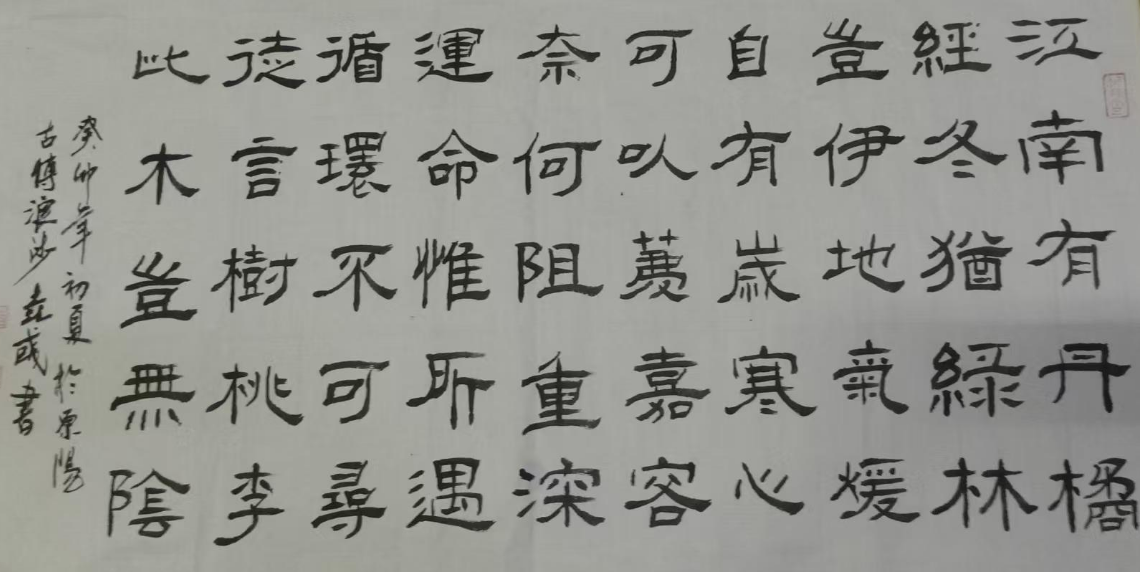 江南有丹橘
經冬猶綠林
豈伊地氣煖
自有歲寒心
可以薦嘉客
奈何阻重深
運命惟所遇
循環不可尋
徒言樹桃李
此木豈無陰
癸卯年初夏於原陽
古博浪沙 書